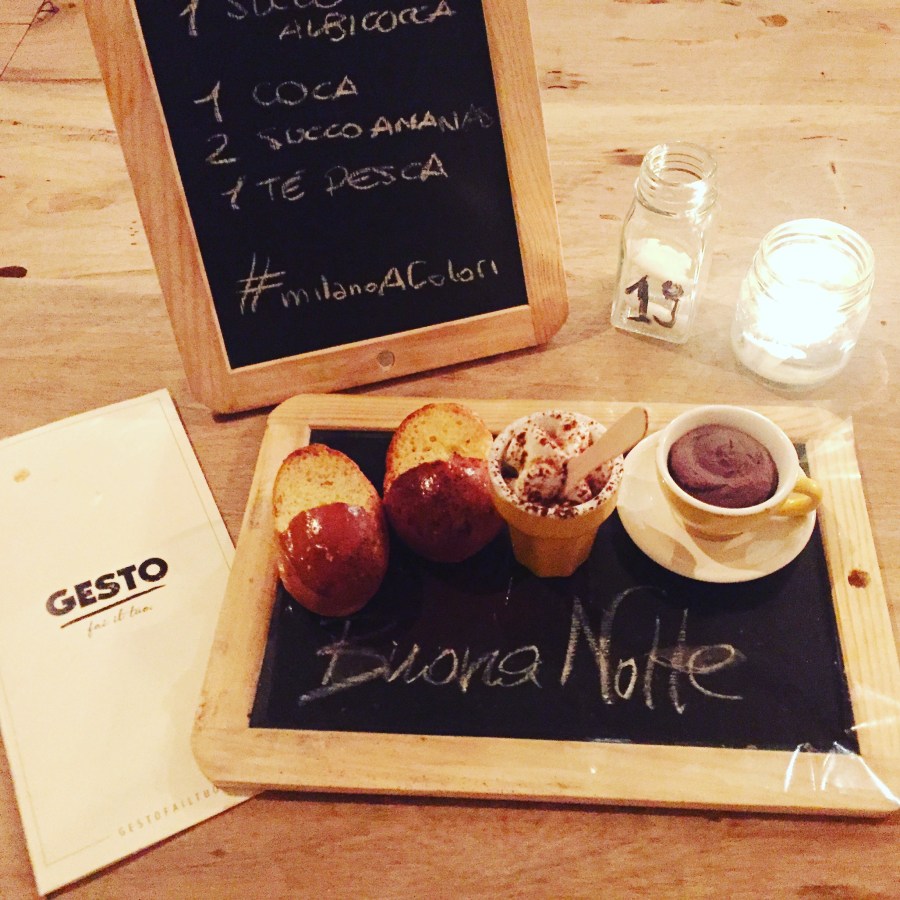 1 SUCCO
ALBICOCCA
1 COCA
2 SUCCO ANANAS
1 TÈ PESCA
#milanoAColori
19
GESTO
fai il tuo.
Buona Notte